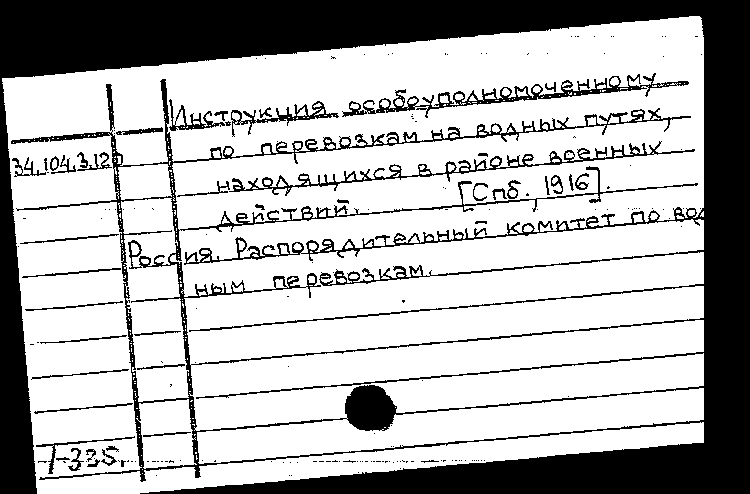 Инструкция особоуполномоченному
34.104.3.120 по перевозкам на водных путях,
находящихся в районе военных
действий. [Спб., 1916].
Россия. Распорядительный комитет по вод
ным перевозкам.
1-335.